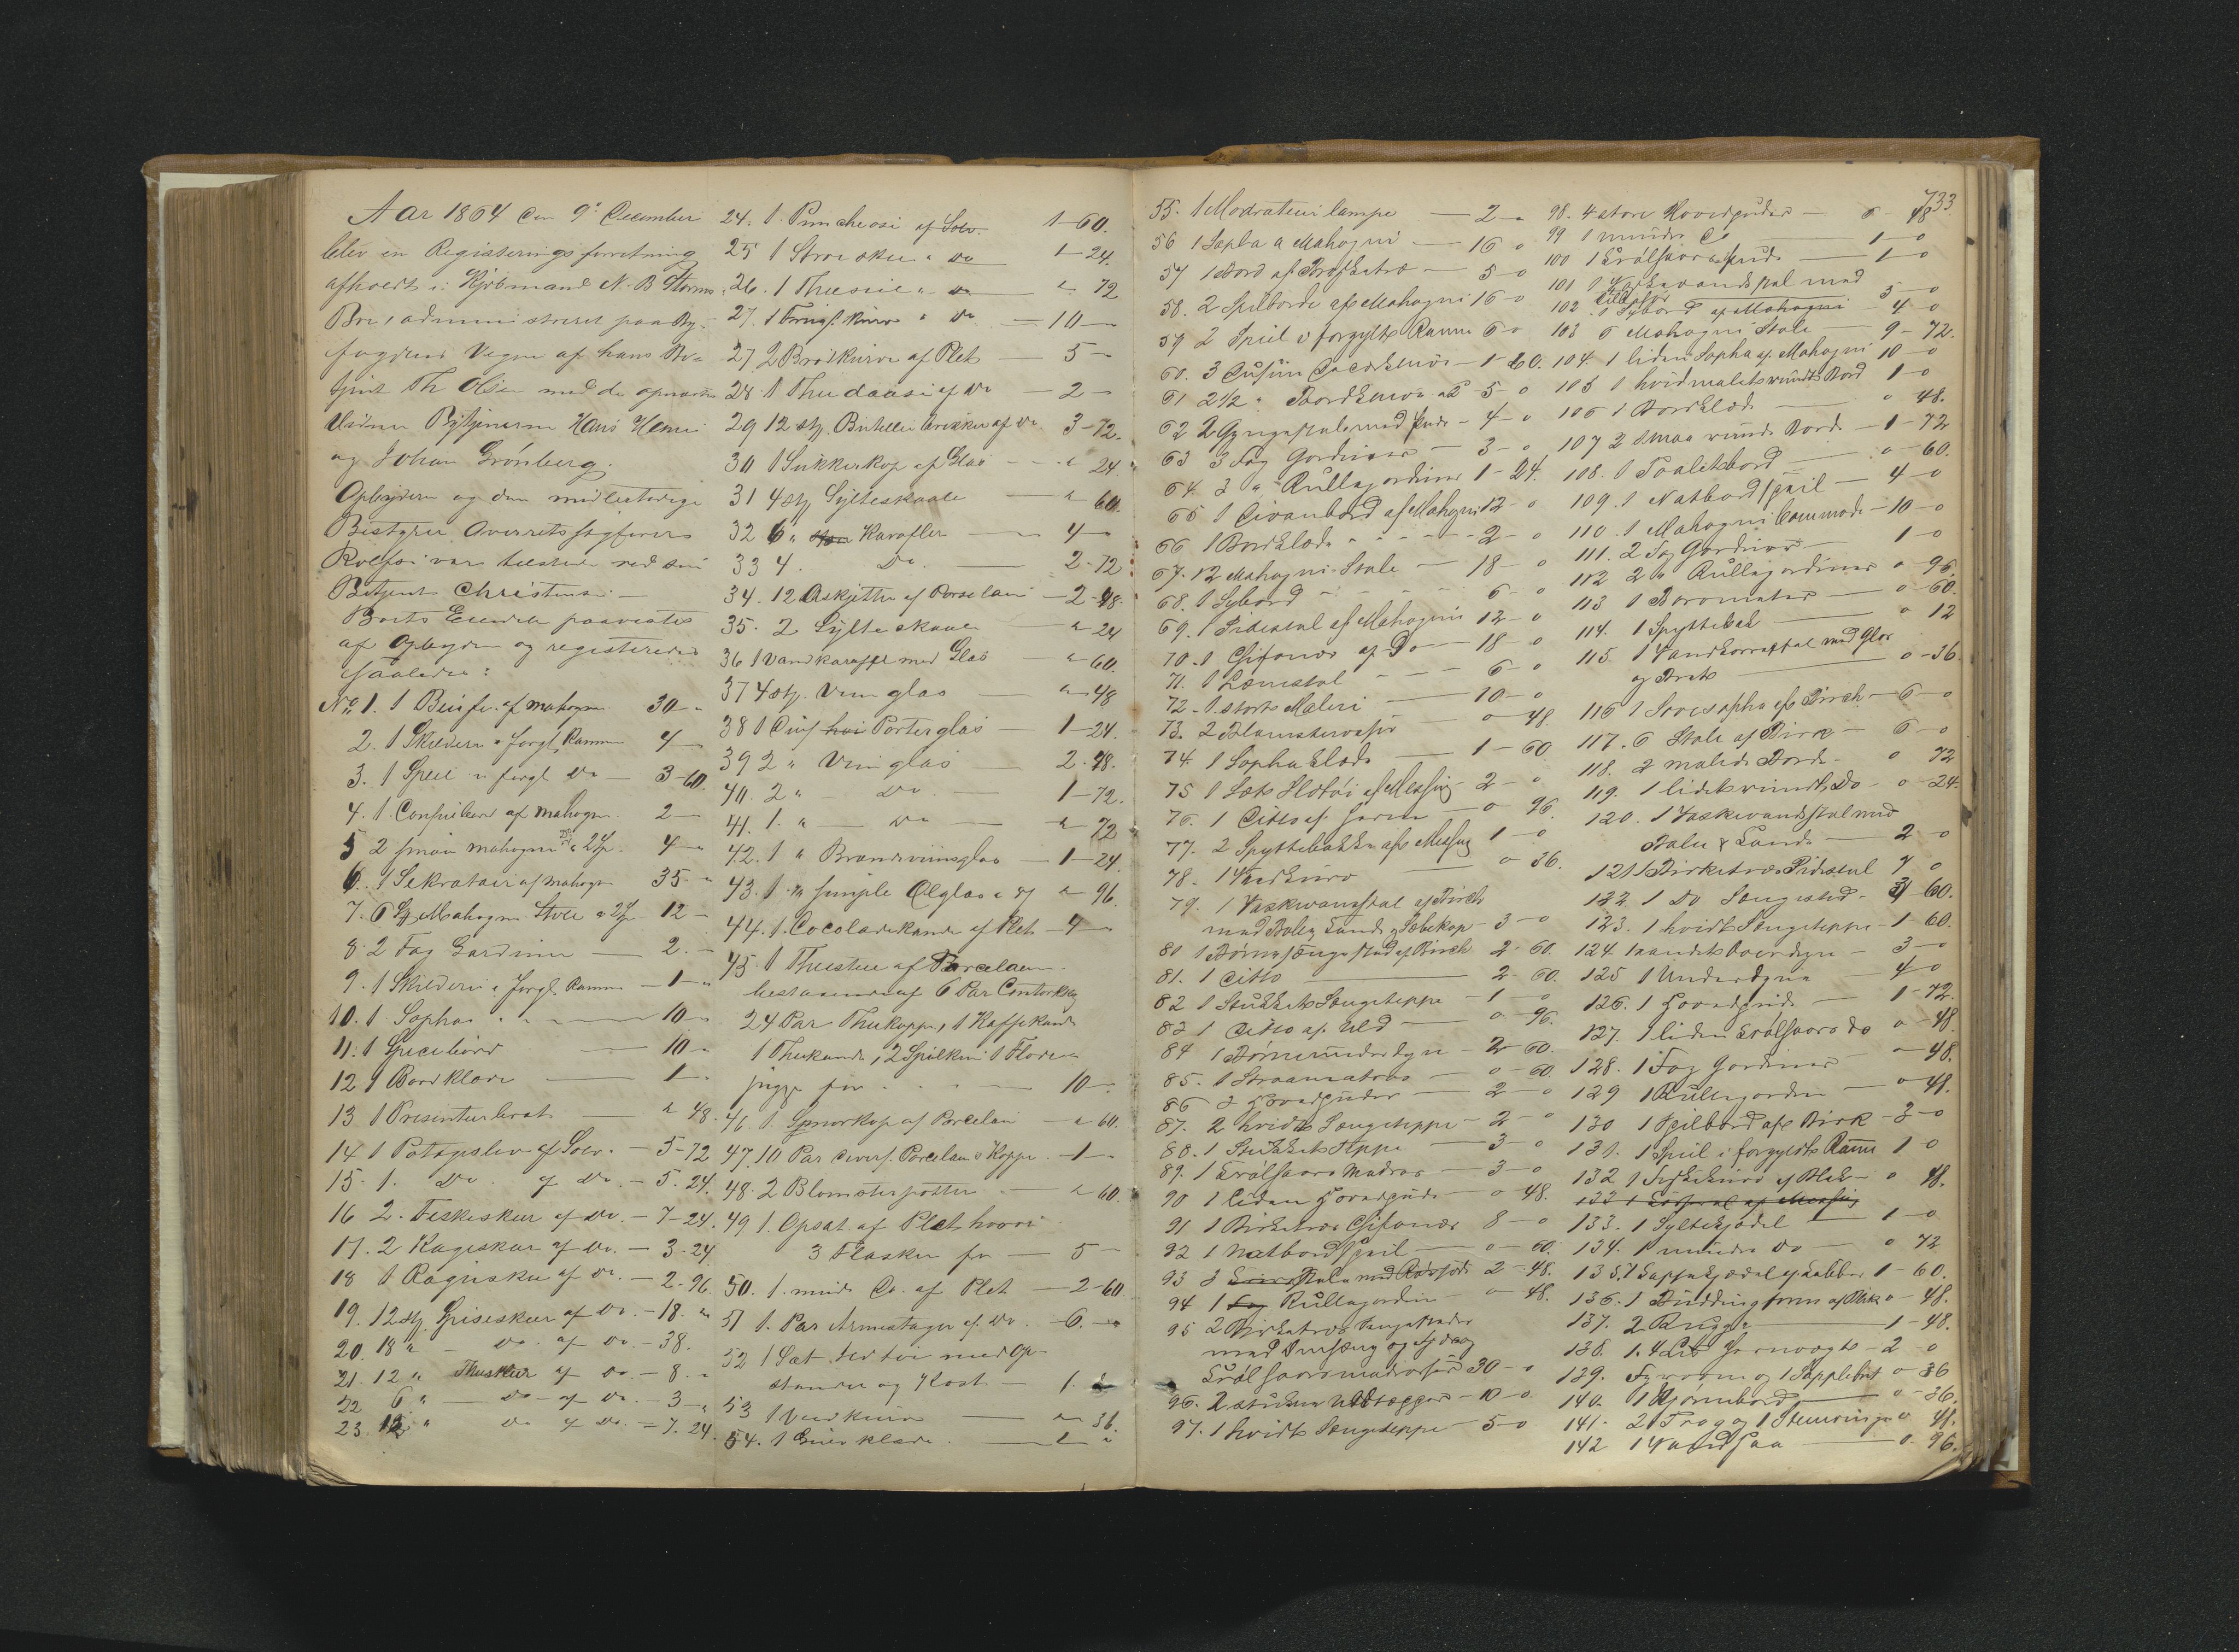 Aar 1864 den 9de December
blev en Registeringsforretning
afholdt i Kjøbmand N. B. Storms
Bo, administreret paa By-
fogdens Vegne af hans Be-
tjent Th Olsen med de opnævnte
Vidner Bytjenerne Hans Henri
og Johan Grønberg.
Opbyderen og den midlertidige
Bestyrer Overretssagfører
Rolfsen var tilstede ved sin
Betjent Christensen.
Boets Eiendele paavistes
af Opbyderen og registreredes
saaledes:
No 1. 1 Buffe af mahogni 30 - "
2. 1 Skilderi i forgl. Ramme 4 - "
3. 1 Speil i forgl Do - 3-60.
4. 1 Consolbord af mahogni 2 -
5 2 smaa mahogni Do a 2 4 - "
6. 1 Sekretair af mahogni 35 - "
7. 6 Stk Mahogni Stole a 2 12 -
8. 2 Fag Gardiner 2. -
9. 1 Skilderi i forgl. Ramme - 1 - "
10. 1 Sopha 10 - "
11. 1 Spisebord 10 - "
12 1 Bordklæde 1 - "
13 1 Presenterbret " 48.
14 1 Potageslev af Sølv. - 5-72
15. 1. Do. af Do. - 5. 24.
16 2. Fiskeskeer af Do. - 7-24.
17. 2 Rageskeer af Do. - 3-24
18 1. Raguske af Do. - 2-96.
19. 12 stk. Spiseskeer af Do. - 18. "
20. 18 " - Do. af Do. - 38.
21. 12 " Theskeer af Do. - 8. "
22 6 " - Do - af Do. - 3 - "
23. 12 " Do af Do. - 7. 24.
24. 1. Puncheøse af Sølv. 1-60.
25 1 Strøeskee " Do 1-24.
26. 1 Theesie " Do " 72
27. 1 Frugt Kurv " Do - 10 -
27. 2 Brødkurve af Plet 5 -
28 1 Theedaase af Do 2 -
29 12 stk. Butellie brikker af Do 3-72.
30 1 Sukkerkop af Glas " 24.
31 4 stk Sylteskaale " 60.
32 6 " Karafler 4 -
33 4. Do. 2-72
34. 12 Asjetter af Porselain - 2-48.
35. 2 Sylteskaale " 24
36 1 Vandkaraffel med Glas " 60.
37 4 stk. Viinglas " 48
38 1 Dus Porterglas 1-24.
39 2 " Viinglas 2-48.
40. 2 " Do. 1-72.
41. 1. " Do " 72
42. 1 " Brændeviinsglas - 1-24.
43. 1 " simple Ølglas " 96.
44. 1. Cocoladekande af Plet - 4 -
45. 1 Theestel af Porcelain
bestaaende af 6 Par
24 Par Theekopper, 1 Kaffekande
1 Theekande, 2 Spølkum 1 Fløde-
mugge for 10 -
46. 1. Smørkop af Porcelain - " 60.
47. 10 Par divers. Porcelains Kopper - 1 -
48. 2 Blomsterpotter - " 60.
49 1. Opsats af Plet hvori
3 Flasker for - 5 -
50. 1. mindre Do. af Plet - 2-60.
51 1. Par Armestager af Do. - 6. -
52 1 Sæt Ildtøi med Op-
stander og Kost - 1. "
53 1 Vedkurv " 36.
54. 1 Gulvklæde. 2 "
733
55. 1 Moderateur lampe - 2 - "
56 1 Sopha a Mahogni 16 - 0
57 1 Bord af Birketræ - 5 - 0
58. 2 Spilborde af Mahogni 16 - 0
59 2 Speil i forgyldte Ramme 6 - 0
60. 3 - 1-60.
61 2 1/2 " 5 - 0
62 2 Gyngestole med Pude - 4 - 0
63 3 Fag Gardiner 3 - 0
64. 3 " Rullegardiner 1-24.
65 1 Divanbord af Mahogni 12 - 0
66 1 Bordklæde - 2 - 0
67. 12 Mahogni-Stole 18 - 0
68. 1 Sybord 6 - 0
69. 1 Pidestal af Mahogni 12 - 0
70. 1 Chifonier af Do 18 - 0
71. 1 Lænestol 6 - 0
72 1 stort Maleri 10 - 0
73. 2 Blomstervaser 0 48.
74 1 Sophaklæde 1-60
75 1 Sæt Ildtøi af Messing 2 - 0
76. 1 Ditto af Jern 0 96.
77. 2 Spyttebakker af Messing 1 - 0
78. 1 Vedkurv 0 36.
79. 1 Vaskevandsstol af Birch
med Bolle, Kande & Sæbekop - 3 - 0
80 1 Børnesengested af Birch 2-60.
81. 1 Ditto 2-60.
82 1 Strikket Sengeteppe - 1 - 0
83 1 Ditto af Uld 0 - 96.
84 1 Børneunderdyne - 2-60.
85. 1 Straamatras 0 - 60.
86 2 Hovedpuder 2 - 0
87. 2 hvide Sengetepper - 2 - 0
88. 1 Strikket Teppe 3 - 0
89. 1 Krølhaars Madras - 3 - 0
90 1 liden Hovedpude - 0 48.
91 1 Birketræs Chifonier 8 - 0
92 1 Natbord speil 0 - 60.
93 3 Stole med Rørsæde 2-48.
94 1 Rullegardin 0 48.
95 2 Birketræs Sengesteder
med
Krølhaarsmadrasser 30 - 0
96. 2 10 - 0
97. 1 hvidt Sengeteppe 5 - 0
98. 4 store Hovedpuder - 6 - 48
99 1 mindre Do 1 - 0
100 1 Krølhaars pude 1 - 0
101 1 Vaskevandsstol med
Tilbehør 5 - 0
102. 1 Sybord af Mahogni 4 - 0
103 6 Mahogni Stole 9-72.
104. 1 liden Sopha af Mahogni 10 - 0
105 1 hvidmalet rundt Bord 1 - 0
106 1 Bordklæde 0 48.
107 2 smaa runde Borde - 1-72
108. 1 Toaletbord 0 - 60.
109. 1 Natbord speil - 4 - 0
110. 1 Mahogni Commode - 10 - 0
111. 2 Fag Gardiner 1 - 0
112 2 " Rullegardiner 0 - 96.
113 1 Barometer 0 - 60.
114. 1 Spyttebak 0 12
115. 1 Vandkaraffel med Glas
og Bret 0 - 36
116 1 Sovesopha af Birch - 6 - 0
117. 6 Stole af Birk - 6 - 0
118. 2 malede Borde 0 72
119. 1 lidet rundt Do - 0 - 24.
120. 1 Vaskevandsstol med
Bolle & Kande 2 - 0
121 1 Birketræs Pidestal 4 0
122 1 Do Sengested - 3-60.
123. 1 hvidt Sengeteppe - 1-60.
124 1 Overdyne - 3 - 0
125 1 Underdyne 4 - 0
126. 1 Hovedpude 1-72.
127. 1 liden Krølhaars do 0 - 48.
128. 1 Fag Gardiner 0 - 48.
129 1 Rullegardin 0 - 48.
130 1 Spilbord af Birk - 3 - 0
131. 1 Speil i forgyldt Ramme 1 - 0
132 1 af Blik - 0 48.
133. 1 Syltekjedel 1 - 0
134. 1 mindre Do 0 72
135. 1 Kaffekjedel af Kobber 1-60.
136. 1 Buddingform af Blik 0 - 48.
137. 2 Brygge 1-48.
138. 1. Jernvægt - 2 - 0
139. 0 36
140. 1 Hjørnebord 0 - 36.
141. 2 Trog og 1 0 48.
142 1 Vandsaa 0. 96.